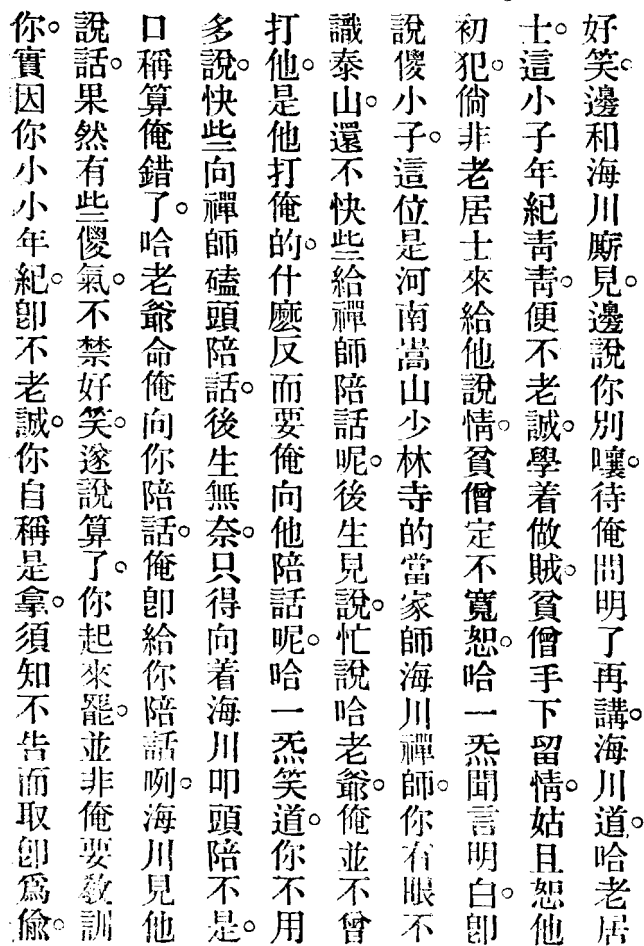 好笑。邊和海川厮見。邊說你別嚷。待俺問明了再講。海川道。哈老居
士。這小子年紀青青。便不老誠。學着做賊。貧僧手下留情。姑且恕他
初犯。倘非老居士來給他說情。貧僧定不寬恕。哈一炁聞言明白。卽
說儍小子。這位是河南嵩山少林寺的當家師海川禪師。你有眼不
識泰山。還不快些給禪師陪話呢。後生見說。忙說哈老爺。俺並不曾
打他。是他打俺的。什麽反而要俺向他陪話呢。哈一炁笑道。你不用
多說。快些向禪師磕頭陪話。後生無奈。只得向着海川叩頭陪不是。
口稱算俺錯了。哈老爺命俺向你陪話。俺卽給你陪話咧。海川見他
說話。果然有些儍氣。不禁好笑。遂說算了。你起來罷。並非俺要敎訓
你。實因你小小年紀。卽不老誠。你自稱是拿。須知不告而取卽爲偷。